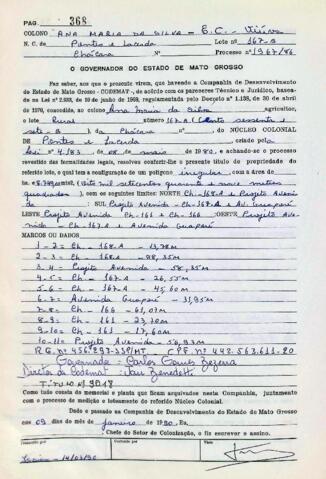 PAG. 368
COLONO ANA MARIA DA SILVA - E.C. - Viúva
N. C. de Pontes e Lacerda Lote nº 167-B
Chácara Processo nº 1967/86
O GOVERNADOR DO ESTADO DE MATO GROSSO
Faz saber, aos que o presente virem, que havendo a Companhia de Desenvolvimento
do Estado de Mato Grosso - CODEMAT -, de acordo com os pareceres Técnico e Jurídico, basea-
da na Lei nº 2.933, de 19 de junho de 1969, regulamentada pelo Decreto nº 1.138, de 30 de
abril de 1970, concedido, ao colono Ana Maria da Silva Agricultor,
o lote Rural número 167-B (Cento sessenta e
sete-B) Chácara do NÚCLEO COLONIAL
DE Pontes e Lacerda criado pela
Lei nº 4.183 de maio de 1980, e achando-se o processo
revestido das formalidades legais, resolveu conferir-lhe o presente título de propriedade do
referido lote, o qual tem a configuração de um polígono irregular com a área de
ha 8.749 m² (oito mil setecentos quarenta e nove metros
quadrados) e com os seguintes limites: NORTE Ch-168-A e Projet. Aveni
da SUL Projet. Avenida - Ch-167-A e Av. Guaporé
LESTE Projet. Avenida Ch-161 e Ch-166 OESTE Projet. Ave
nida - Ch-168-A - Ch-167-A e Avenida Guaporé
MARCOS OU DADOS
1-2= Ch - 168-A - 13,78m
2-3= Ch - 168-A - 98,35m
3-4= Projet. Avenida - 58,35m
4-5= Ch - 167-A - 26,55m
5-6= Ch - 167-A - 45,60m
6-7= Avenida Guaporé - 31,95m
7-8= Ch - 166 - 61,07m
8-9= Ch - 161 - 23,70m
9-10= Ch - 161 - 17,60m
10-11= Projet. Avenida - 56,93m
R.G. nº 456.297-SSP/MT. CPF. nº 442.563.611-20
Governador - Carlos Gomes Bezerra
Diretor da Codemat: Jair Benedetti
Título nº 9018
Tudo como consta do memorial e planta que ficam arquivados nesta Companhia, juntamente
com o processo de medição e loteamento do referido Núcleo Colonial.
Dado e passado na Companhia de Desenvolvimento do Estado do Mato Grosso
em 09 dias do mês de janeiro de 1990. Eu,
Chefe do Setor de Colonização, o fiz escrever e assino.